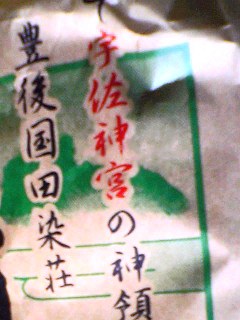 宇佐神宮の神領
豊後国田染荘